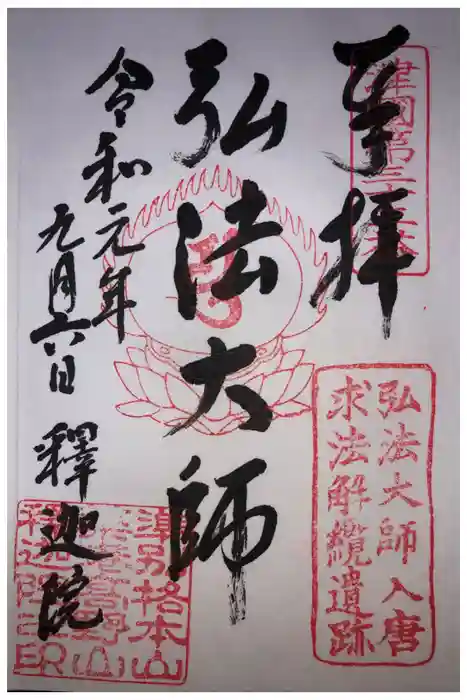 奉拝
弘法大師入唐
求法解纜遺跡
弘法大師
令和元年
九月六日
釋迦院
準別格本山